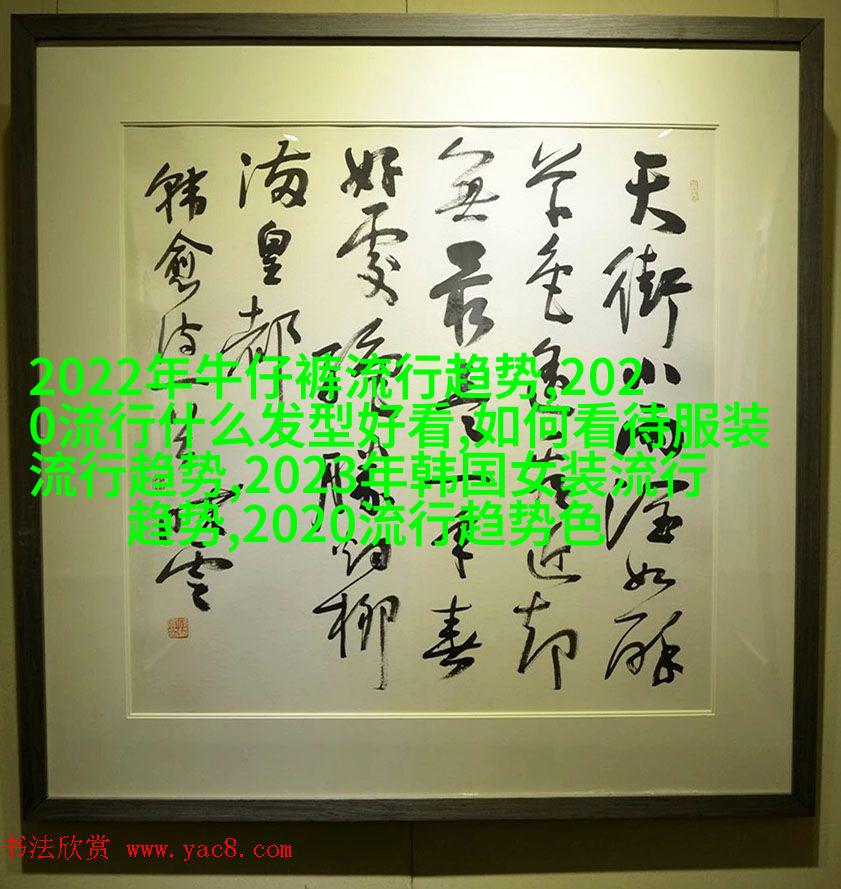 天街小雨潤如酥
草色遙看近却
無最是一年春
好處絕勝烟柳
滿皇都
韓愈詩一首
2022年牛仔裤流行趋势,202
0流行什么发型好看,如何看待服装
流行趋势,2023年韩国女装流行
趋势,2020流行趋势色
书法欣赏 www.yac8.com